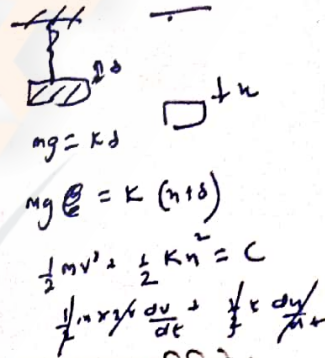 δ
x
mg = Kδ
mg = K (x+δ)
½ mv² + ½ Kx² = C
½ m × 2v dv/dt + ½ K dx/dt